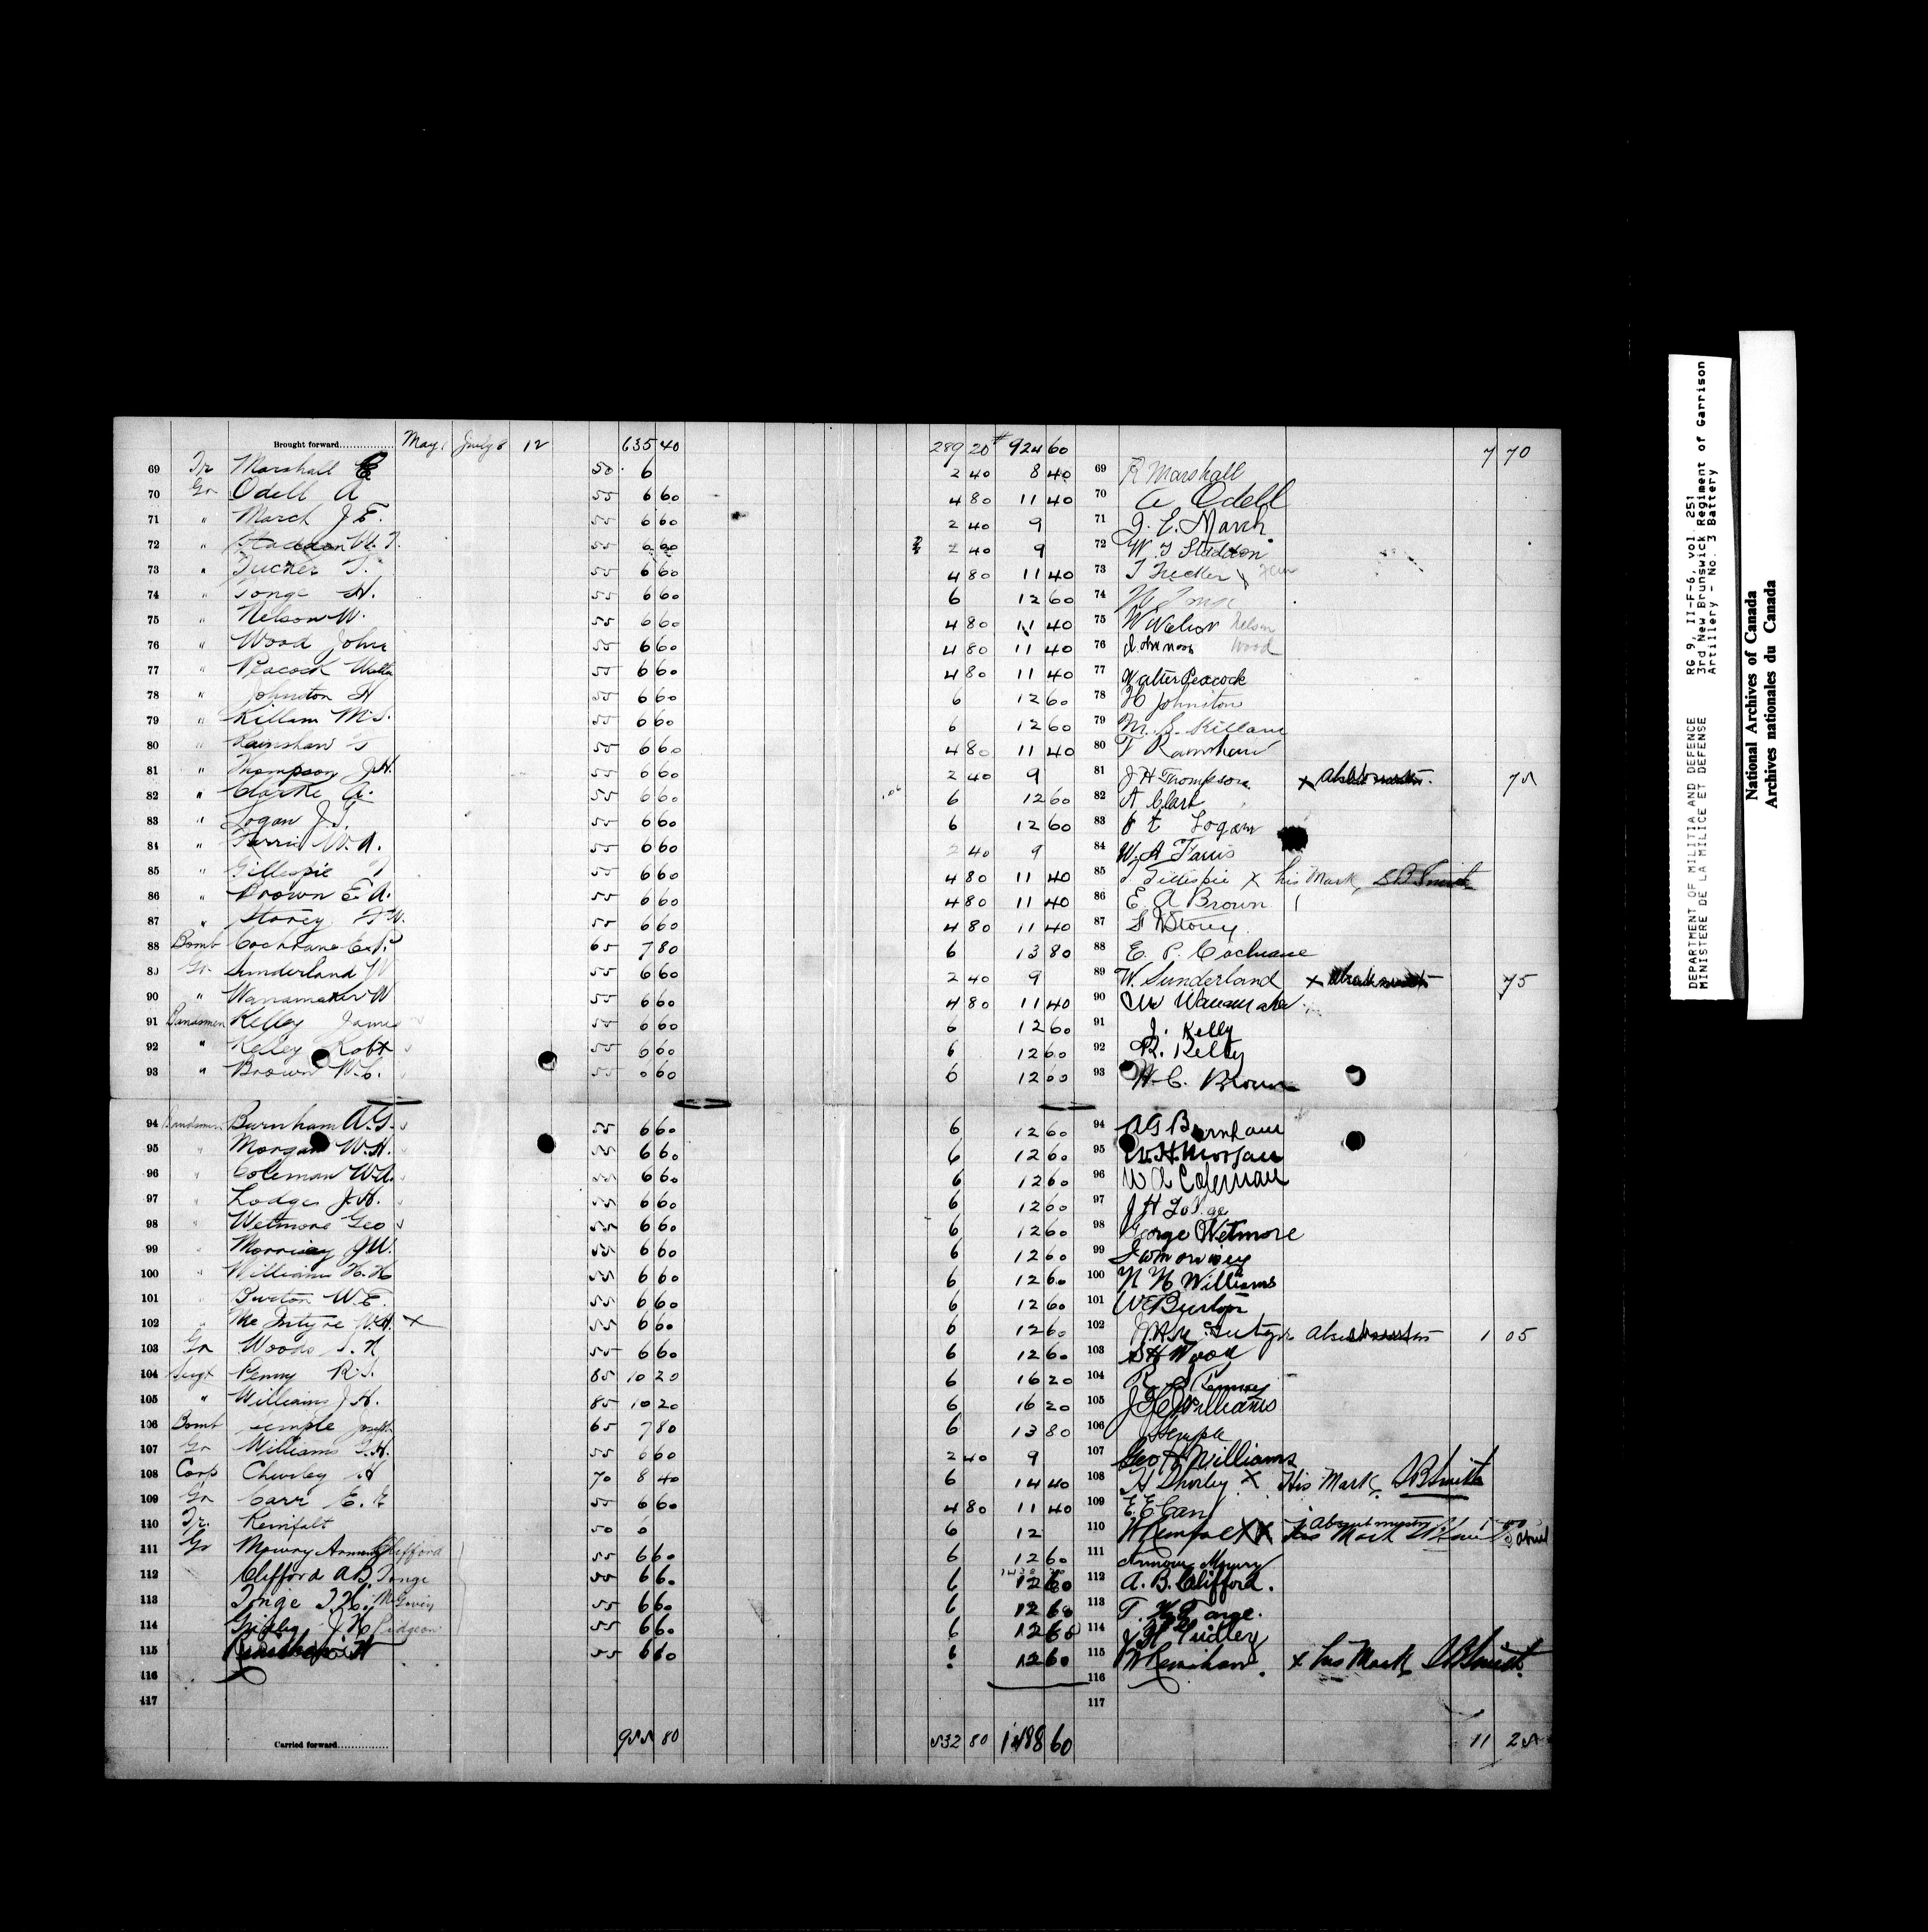 Brought forward May 1 July 8 12 635 40 289 20 # 924 60 7 70
69 Tr Marshall 50 6 2 40 8 40 69 R Marshall
70 Gr Odell A 55 6 60 4 80 11 40 70 A Odell
71 " March J. E. 55 6 60 2 40 9 71 J. E. March
72 " Staddon W. T. 55 6 60 2 40 9 72 W T Staddon
73 " Tucker T. 55 6 60 4 80 11 40 73 T Tucker x
74 " Tonge H. 55 6 60 6 12 60 74 H Tonge
75 " Nelson W. 55 6 60 4 80 11 40 75 W Nelson Nelson
76 " Wood John 55 6 60 4 80 11 40 76 Wood
77 " Peacock Walter 55 6 60 4 80 11 40 77 Walter Peacock
78 " Johnston H 55 6 60 6 12 60 78 H Johnston
79 " Killam M. S. 55 6 60 6 12 60 79 M. S. Killam
80 " Ramshaw T 55 6 60 4 80 11 40 80 T Ramshaw
81 " Thompson J. H. 55 6 60 2 40 9 81 J H Thompson x 75
82 " Clarke A. 55 6 60 6 12 60 82 A Clark
83 " Logan J. T. 55 6 60 6 12 60 83 J t Logan
84 " Farris W. A. 55 6 60 2 40 9 84 W. A Farris
85 " Gillespie T 55 6 60 4 80 11 40 85 T Gillespie x his Mark SB Smith
86 " Brown E. A. 55 6 60 4 80 11 40 86 E. A Brown
87 " Storey F W. 55 6 60 4 80 11 40 87 F W Storey
88 Bomb Cochrane E. P. 65 7 80 6 13 80 88 E. P. Cochrane
89 Gr. Sunderland W 55 6 60 2 40 9 89 W. Sunderland x 75
90 " Wanamaker W 55 6 60 4 80 11 40 90 W Wanamaker
91 Bandsmen Kelley James 55 6 60 6 12 60 91 J. Kelly
92 " Kelley Robt 55 6 60 6 12 60 92 R. Kelley
93 " Brown W. C. 55 6 60 6 12 60 93 W. C. Brown
94 Bandsmen Burnham A. G. 55 6 60 6 12 60 94 AG Burnham
95 " Morgan W. H. 55 6 60 6 12 60 95 W. H. Morgan
96 " Coleman W. A. 55 6 60 6 12 60 96 W A Coleman
97 " Lodge J. H. 55 6 60 6 12 60 97 J H Lodge
98 " Wetmore Geo 55 6 60 6 12 60 98 George Wetmore
99 " Morrisey J. W. 55 6 60 6 12 60 99 J W Morrisey
100 " Williams H. H 55 6 60 6 12 60 100 H H Williams
101 " Burton W. E. 55 6 60 6 12 60 101 W E Burton
102 " Mc Intyre W. H. x 55 6 60 6 12 60 102 1 05
103 Gr Woods S. H 55 6 60 6 12 60 103 S H Wood
104 Sergt Penny R. S. 85 10 20 6 16 20 104 R. S. Penney
105 " Williams J. H. 85 10 20 6 16 20 105 J H Williams
106 Bomb Semple Joseph 65 7 80 6 13 80 106 J Semple
107 Gr Williams G. H. 55 6 60 2 40 9 107 Geo H Williams
108 Corp Chorley H 70 8 40 6 14 40 108 H Chorley x His Mark SB Smith
109 Gr Carr E. E 55 6 60 4 80 11 40 109 E. E Carr
110 Tr. 50 6 6 12 110
111 Gr Mowry Armour Clifford 55 6 60 6 12 60 111 Armour Mowry
112 Clifford A B Tonge 55 6 60 6 12 60 112 A. B. Clifford.
113 Tonge T. H. 55 6 60 6 12 60 113 T. H. Tonge.
114 J H Pidgeon 55 6 60 6 12 60 114
115 55 6 60 6 12 60 115 x his Mark SB Smith
116 116
117 117
Carried forward 955 80 532 80 1488 60 11 25
DEPARTMENT OF MILITIA AND DEFENCE RG 9, II-F-6, vol 251
MINISTERE DE LA MILICE ET DEFENSE 3rd New Brunswick Regiment of Garrison
Artillery - No. 3 Battery
National Archives of Canada
Archives nationales du Canada